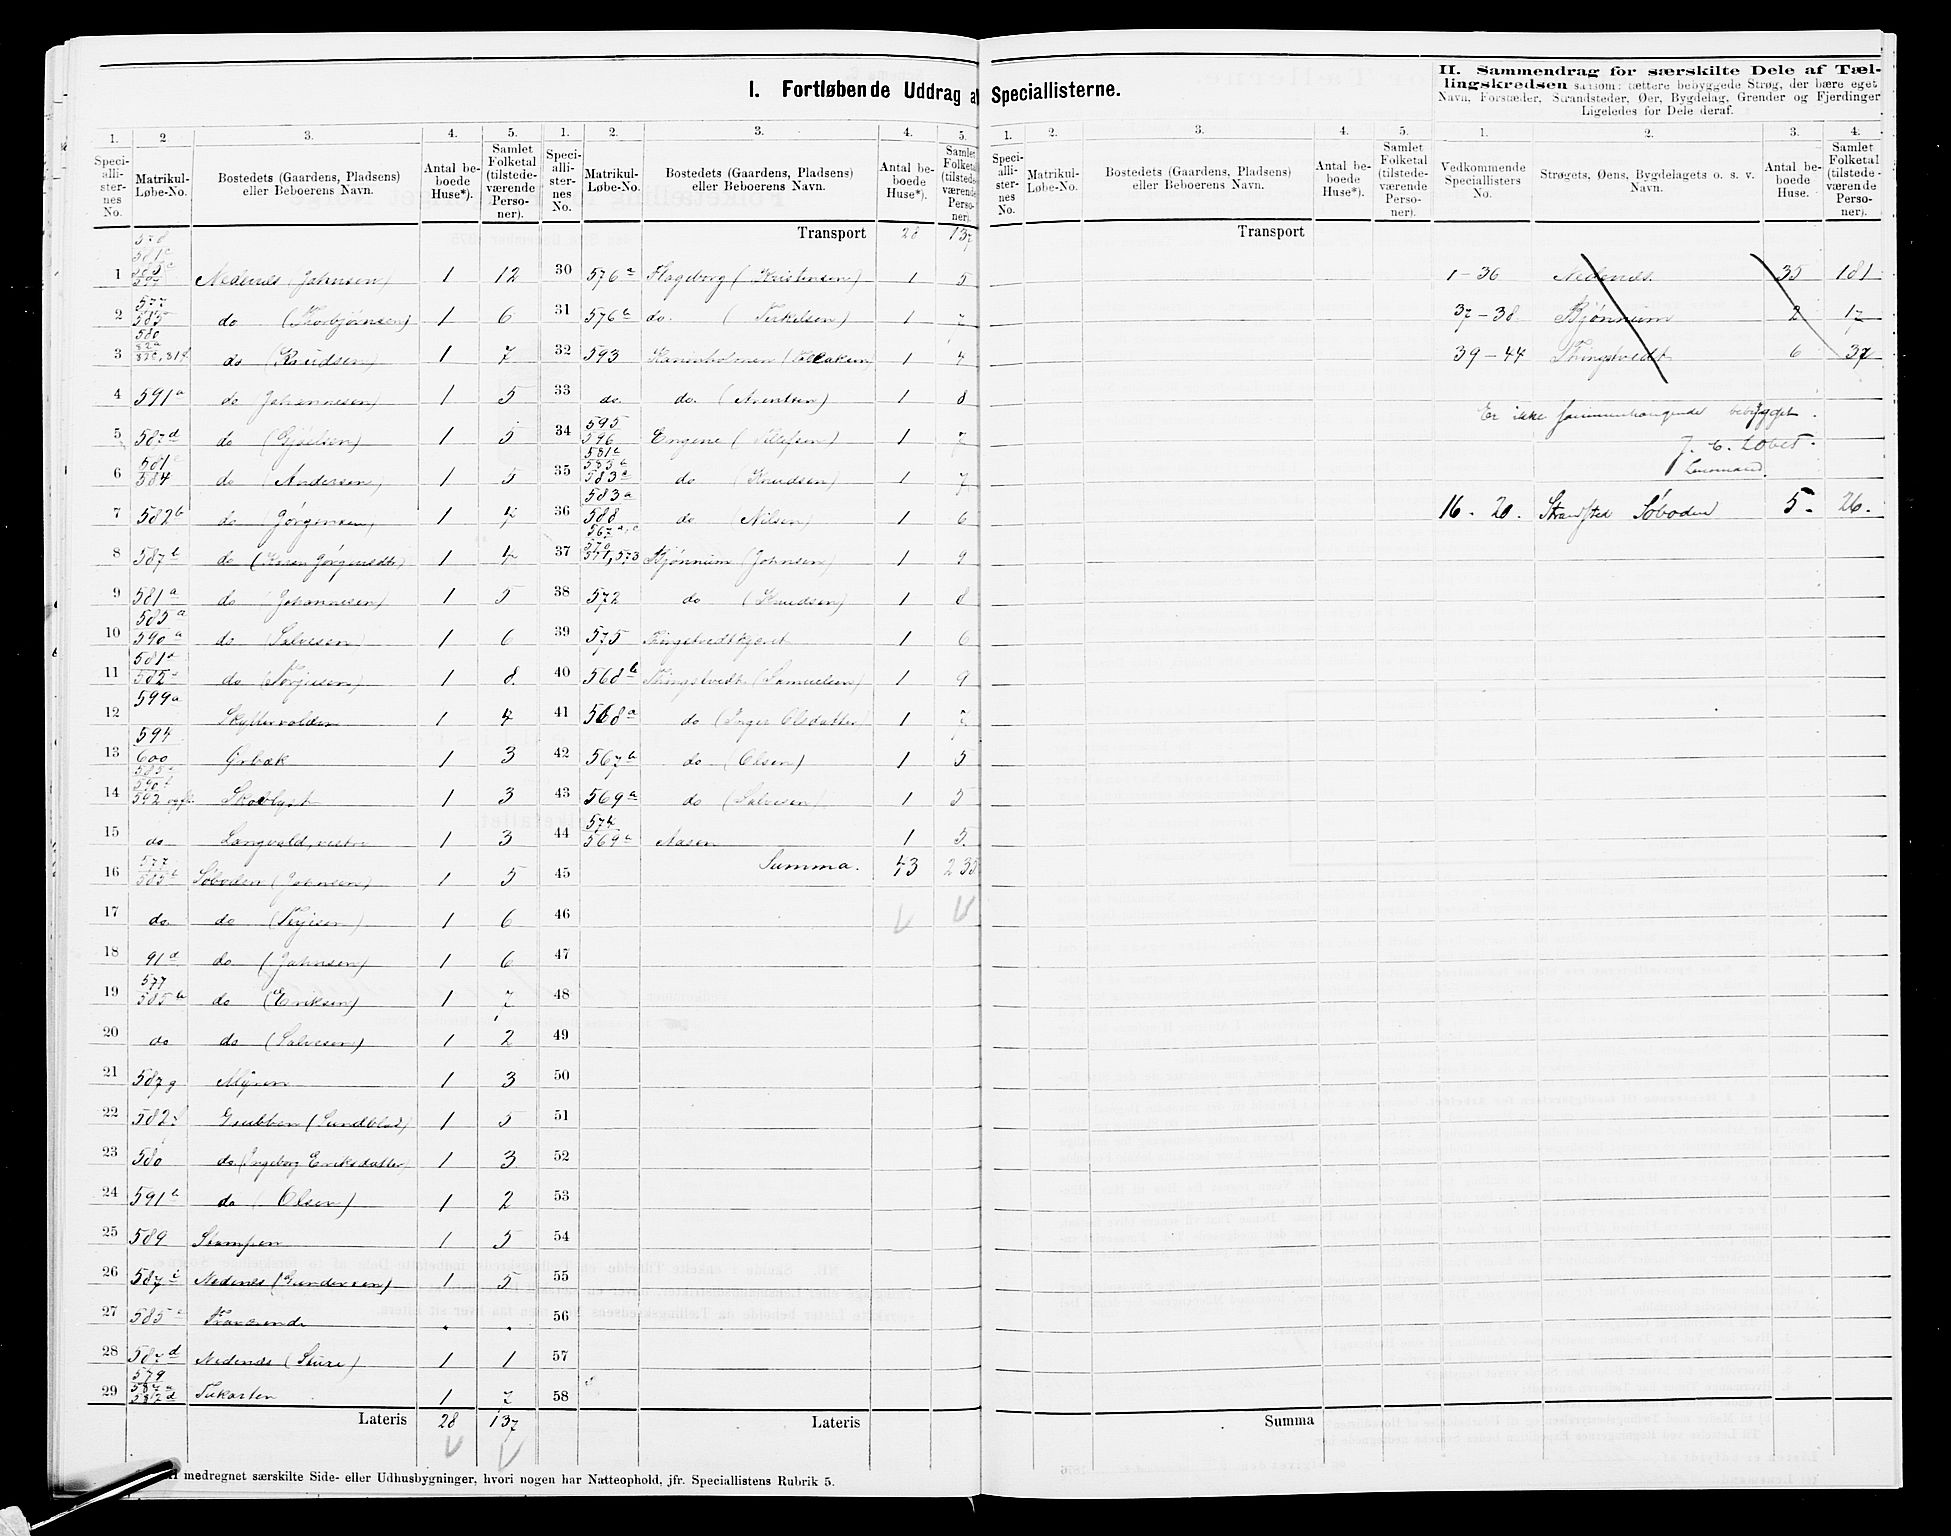 I. Fortløbende Uddrag af Speciallisterne.
II. Sammendrag for særskilte Dele af Tæl-
lingskredsen saasom: tættere bebyggede Strøg, der bære eget
Navn, Forstæder, Strandsteder, Øer, Bygdelag, Grender og Fjerdinger
Ligeledes for Dele deraf.
1. 2. 3. 4. 5. 1. 2. 3. 4. 5.
Speciallisternes No. Matrikul-Løbe-No. Bostedets (Gaardens, Pladsens) eller Beboerens Navn. Antal beboede Huse*). Samlet Folketal (tilstedeværende Personer).
1 Nedenes (Johnsen) 1 12
2 577 585 do (Thorbjørnsen) 1 6
3 580 do (Knudsen) 1 7
4 591a do Johannesen) 1 5
5 587d do (Gjøelsen) 1 5
6 581c 584 do (Andersen) 1 5
7 582b do (Jørgensen) 1 4
8 587b do (Karen Jørgensdtr) 1 4
9 581a do (Johannesen) 1 5
10 585a 590a do (Salvesen) 1 6
11 581d 582 do (Terjesen) 1 8.
12 599a Skyttervolden 1 4
13 594 600 Grbæk 1 3
14 592 1 3
15 do Langvold, vestre 1 3
16 577 585b Søboden (Johnsen) 1 5
17 do do (Terjesen) 1 6
18 91d do (Johnsen) 1 6
19 577 585b do (Eriksen) 1 7
20 do do (Salvesen) 1 2
21 587g Myren 1 3
22 582 Grubben (Sundblad) 1 5
23 580 do (Ingeborg Eriksdatter) 1 3
24 591b do (Olsen) 1 2
25 589 Stampen 1 5
26 587i Nedenes (Gundersen) 1 5
27 585c . .
28 587d Nedenes (Sture) 1 1
29 579 1 7
Lateris 28 137
Transport 28 137
30 576a Flageborg (Kristensen) 1 5
31 576b do (Terkelsen) 1 7
32 593 1 4
33 do do (Arentsen) 1 8
34 595 596 Engene 1 7
35 581a 585a 583a do (Knudsen) 1 7
36 583a 588 do (Nilsen) 1 6
37 571, 573 Bjønnum (Johnsen) 1 9
38 572 do (Knudsen) 1 8
39 575 Thingstvedtkjeret 1 6
40 568b Thingstvedt (Samuelsen) 1 9
41 568a do (Inger Olsdatter) 1 7
42 567b do (Olsen) 1 5
43 569a do (Salvesen) 1 5
44 574 569a Aasen 1 5.
45 Summa. 43 235
46
47
48
49
50
51
52
53
54
55
56
57
58
Lateris
*) Heri medregnet særskilte Side- eller Udhusbygninger, hvori nogen har Natteophold, jfr. Speciallistens Rubrik 5.
1. 2. 3. 4. 5.
Speciallisternes No. Matrikul-Løbe-No. Bostedets (Gaardens, Pladsens) eller Beboerens Navn. Antal beboede Huse*). Samlet Folketal (tilstedeværende Personer).
Transport
Summa
1. 2. 3. 4.
Vedkommende Speciallisters No. Strøgets, Øens, Bygdelagets o. s. v. Navn. Antal beboede Huse. Samlet Folketal (tilstedeværende Personer).
1 - 36 Nedenes. 35 181
37 - 38 Bjønnum 2 17
39 - 44 Thingstvedt 6 37
Er ikke sammenhængende bebygget.
Lensmand.
16. - 20. Strandsted Søboden 5. 26.